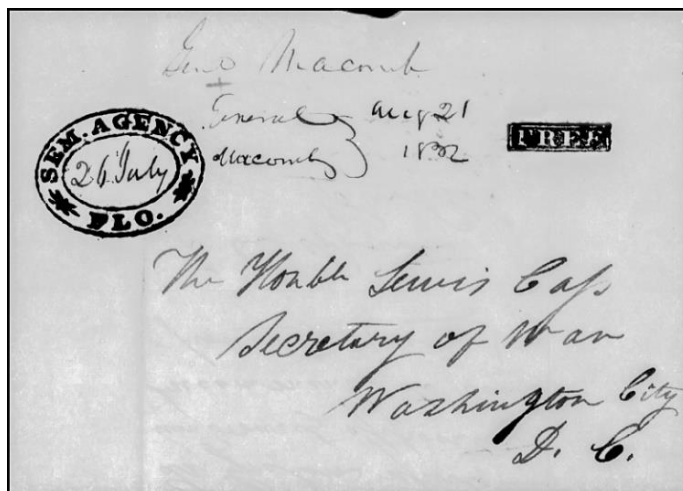 Genl Macomb
General Aug 21
Macomb 1832
FREE
SEM. AGENCY
26 July
FLO.
The Honble Lewis Cass
Secretary of War
Washington City
D. C.